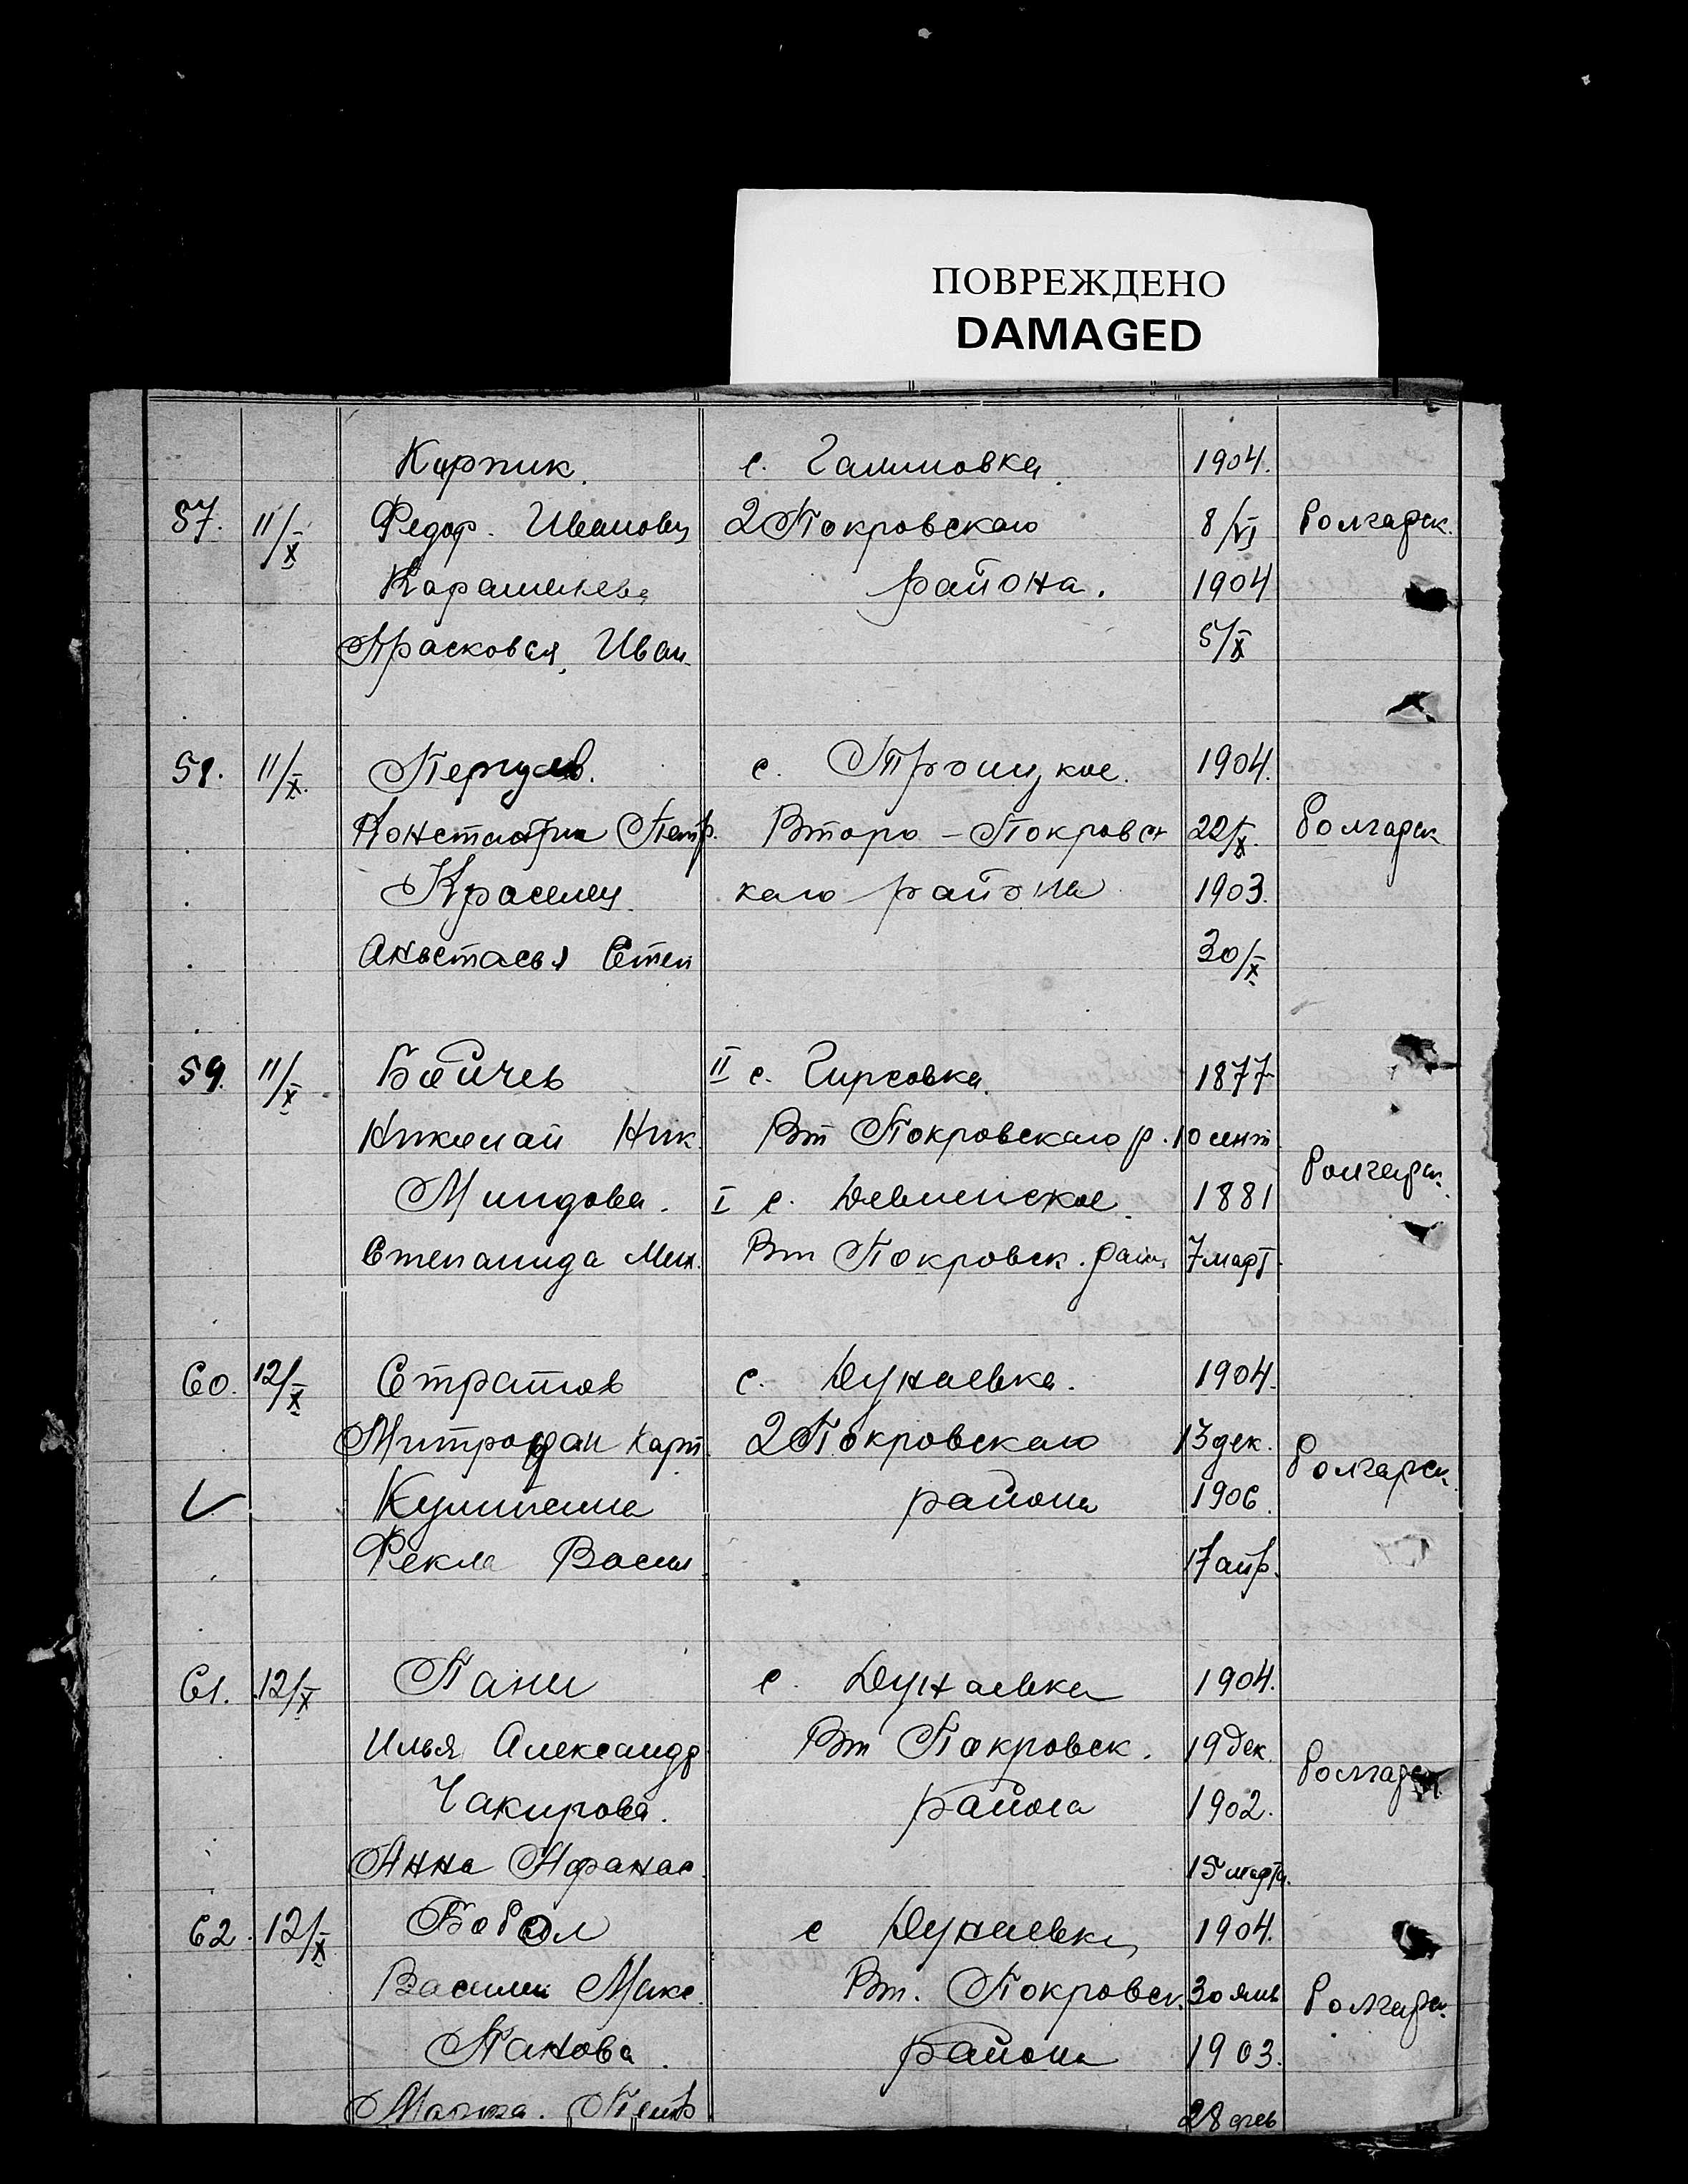 ПОВРЕЖДЕНО
DAMAGED
Карпик. с. Галиловка. 1904.
57. 11/X Федор. Иванович 2 Покровскаго 8/VI болгарск.
района. 1904
Прасковья, Иван. 5/X
58. 11/X. с. Троицкое. 1904.
Константин Петр. Второ-Покровск 22/X. болгарск
каго района 1903.
Анастасья Степ 30/X
59. 11/X Бойчев II с. Гирсовка. 1877
Николай Ник. Вт Покровскаго р. 10 сент.
Миндова. I с. Девленское. 1881 болгарск.
Степанида Мих. Вт Покровск. райн 7 март.
60. 12/X Стратов с. Дунаевка. 1904.
Митрофан Карп. 2 Покровскаго 13 дек. болгарск
района 1906.
Фекла Васил. 17 апр.
61. 12/X Пани с. Дунаевка 1904.
Илья Александр Вт Покровск. 19 дек. болгарск.
Чакирова. района 1902.
Анна Афанас. 15 марта.
62. 12/X с Дунаевка 1904.
Василий Макс. Вт. Покровск. 30 янв болгарск.
Панова. района 1903.
Петр 28 фев